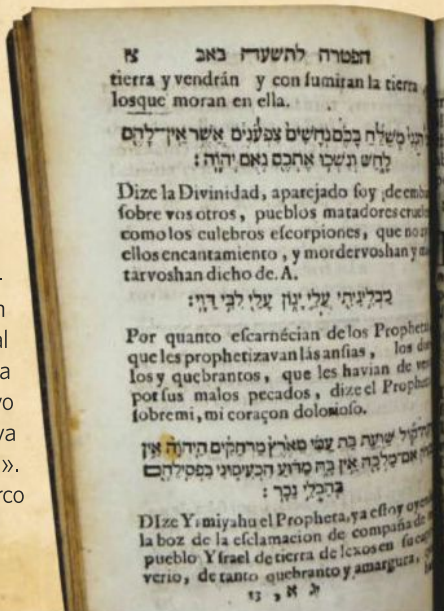 הפטרה לתשעה באב
tierra y vendrán y con sumiran la tierra
losque moran en ella.
הנני משלח בכם נחשים צפענים אשר אין־להם
לחש ונשכו אתכם נאם יהוה :
Dize la Divinidad, aparejado soy, de
sobre vos otros, pueblos matadores
como los culebros escorpiones, que no
ellos encantamiento, y mordervoshan y
tárvoshan dicho de. A.
מבליגיתי עלי יגון עלי לבי דוי :
Por quanto escarnécian de los
que les prophetizavan lás ansias, los
los y quebrantos, que les havian de
por sus malos pecados, dize el
sobre mi, mi coraçon dolorioso.
קול שועת בת עמי מארץ מרחקים היהוה אין
אם־מלכה אין בה מדוע הכעיסוני בפסיליהם
בהבלי נכר :
DIze Yrmiyahu el Propheta, ya estoy
la boz de la esclamacion de compaña de
pueblo Ysrael de tierra de lexos en su
verio, de tanto quebranto y amargura,
al
a
vo
va
».
rco